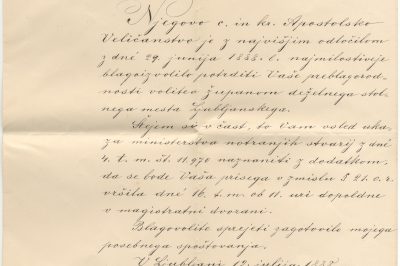 Njegovo c. in kr. Apostolsko
Veličanstvo je z najvišjim odločilom
z dné 29. junija 1888. l. najmilostiveje
blagoizvolilo potrditi Vaše preblagorod-
nosti volitev županom deželnega stol-
nega mesta Ljubljanskega.
Štejem si v čast, to Vam vsled uka-
za ministerstva notranjih stvarij z dné
4. t. m. št. 11970 naznaniti z dodatkom,
da se bode Vaša prisega v zmislu § 25. o. r.
vršila dné 16. t. m. ob 11. uri dopoldne
v magistratni dvorani.
Blagovolite sprejeti zagotovilo mojega
posebnega spoštovanja.
V Ljubljani, 12. julija